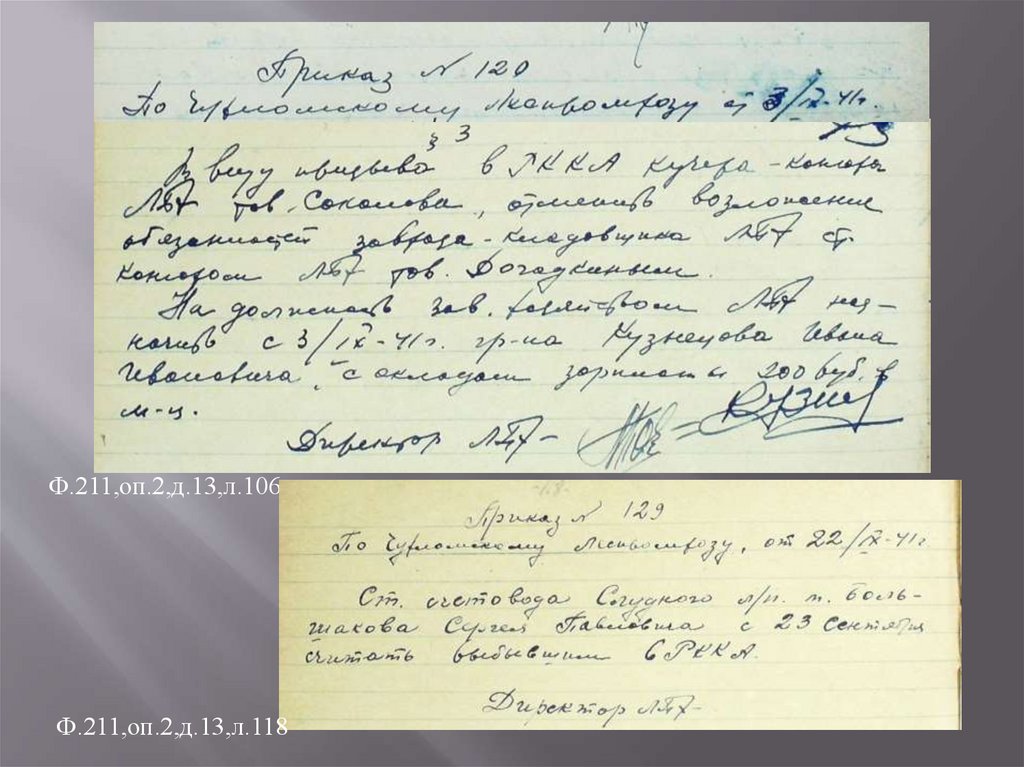 Приказ № 120
По Чухломскому Леспромхозу от 3/IX-41г.
§ 3
В виду призыва в РККА кучера-конторы
ЛПХ тов. Соколова, отменить возложение
обязанностей завхоза-кладовщика ЛПХ ст.
конюхом ЛПХ тов. Догадкиным.
На должность зав. хозяйством ЛПХ наз-
начить с 3/IX-41г. гр-на Кузнецова Ивана
Ивановича, с окладом зарплаты 200 руб. в
м-ц.
Директор ЛПХ-
Ф.211,оп.2,д.13,л.106
Приказ № 129
По Чухломскому Леспромхозу, от 22/IX-41г.
Ст. счетовода Слудного л/п. т. Боль-
шакова Сергея Павловича с 23 сентября
считать выбывшим в РККА.
Директор ЛПХ-
Ф.211,оп.2,д.13,л.118